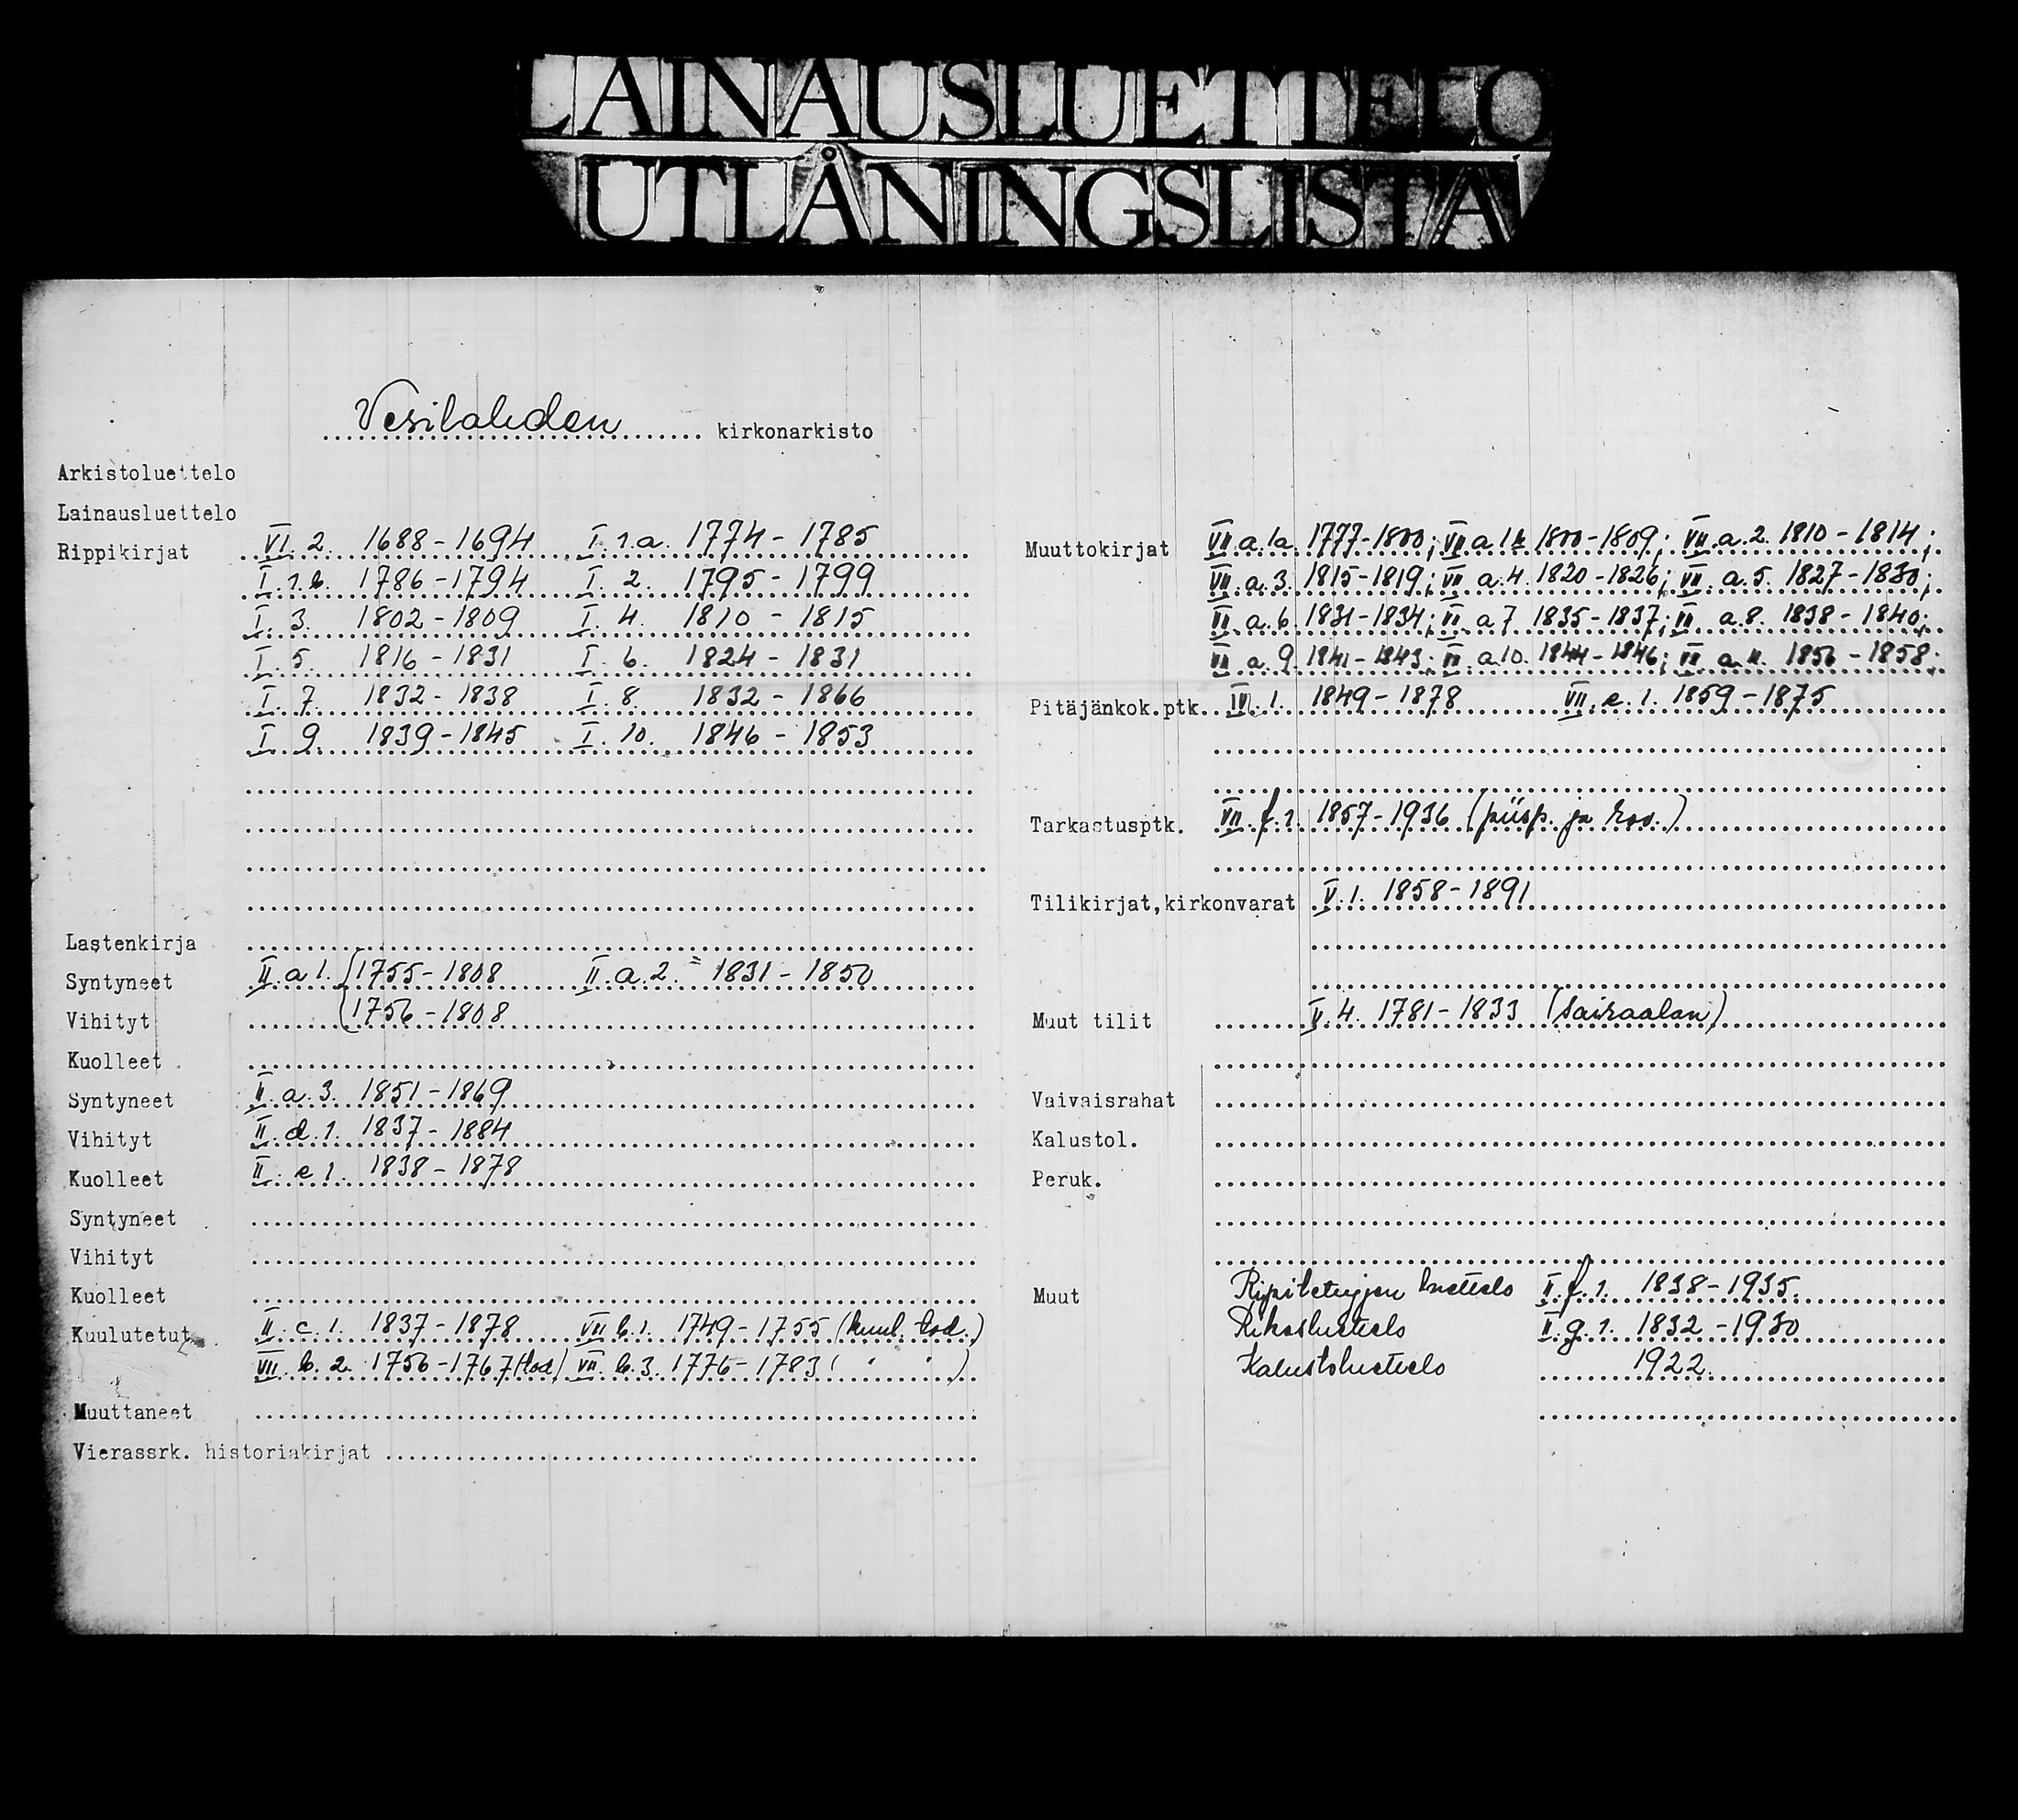 LAINAUSLUETTELO
UTLÅNINGSLISTA
Vesilahden kirkonarkisto
Arkistoluettelo
Lainausluettelo
Rippikirjat VI. 2. 1688-1694 I. 1.a. 1774-1785
I. 1.b. 1786-1794 I. 2. 1795-1799
I. 3. 1802-1809 I. 4. 1810-1815
I. 5. 1816-1831 I. 6. 1824-1831
I. 7. 1832-1838 I. 8. 1832-1866
I. 9. 1839-1845 I. 10. 1846-1853
Lastenkirja
Syntyneet II. a 1. 1755-1808 II. a. 2. 1831-1850
Vihityt 1756-1808
Kuolleet
Syntyneet II. a. 3. 1851-1869
Vihityt II. d. 1. 1837-1884
Kuolleet II. e 1. 1838-1878
Syntyneet
Vihityt
Kuolleet
Kuulutetut II. c. 1. 1837-1878 VII b. 1. 1749-1755 (kuul. tod.)
VII. b. 2. 1756-1767 (tod) VII. b. 3. 1776-1783 ( " " )
Muuttaneet
Vierassrk. historiakirjat
Muuttokirjat VII. a. 1a. 1777-1800; VII a 1b 1800-1809; VII. a. 2. 1810-1814;
VII. a. 3. 1815-1819; VII a. 4. 1820-1826; VII. a. 5. 1827-1830;
VII. a. 6. 1831-1834; VII a 7 1835-1837; VII a. 8. 1838-1840;
VII a. 9. 1841-1843; VII a 10. 1844-1846; VII a. 11. 1856-1858;
Pitäjänkok.ptk. IV. 1. 1849-1878 VII. e. 1. 1859-1875
Tarkastusptk. VII. f. 1. 1857-1936 (piisp. ja rov.)
Tilikirjat,kirkonvarat V. 1. 1858-1891
Muut tilit V. 4. 1781-1833 (Sairaalan)
Vaivaisrahat
Kalustol.
Peruk.
Muut Ripiltcupjen luettelo II. f. 1. 1838-1935.
Rikosluettelo II. g. 1. 1832-1930
Kalustoluettelo 1922.